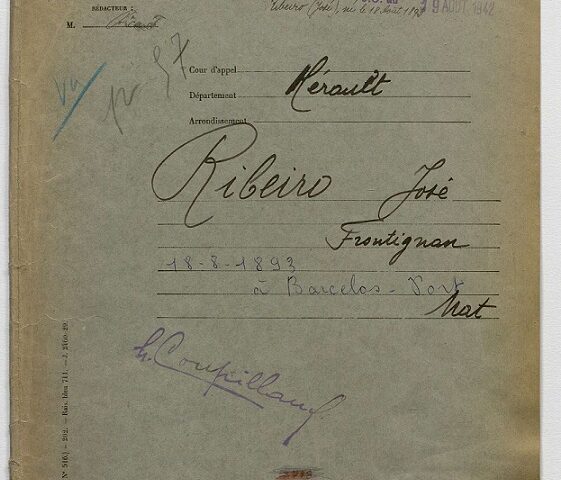 RÉDACTEUR :
Ribeiro (José), né le 18 Août 1893
9 AOUT 1942
M.
Vu
97
Cour d'appel
Département Hérault
Arrondissement
Ribeiro José
Frontignan
18-8-1893
à Barcelos - Port
Nat
h. Coupillaud
N° 516.) — 292. — Rais. bleu 711. — J. 2160-29.